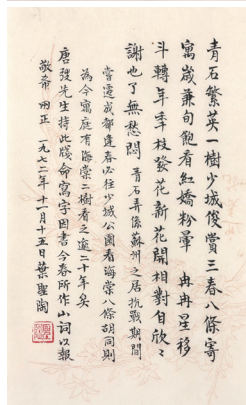 青石繁英一樹少城俊賞三春八條寄
寓歲兼旬飽看紅嬌粉暈 冉冉星移
斗轉年年枝發花新花開相對自欣欣
謝也了無愁悶 青石弄係蘇州之居抗戰期間
嘗還成都逢春必往少城公園看海棠八條胡同則
為今寓庭有海棠二樹看之逾二十年矣
唐弢先生持此牋命寫字因書今春所作小詞以報
敬希 兩正 一九七二年十一月十五日葉聖陶